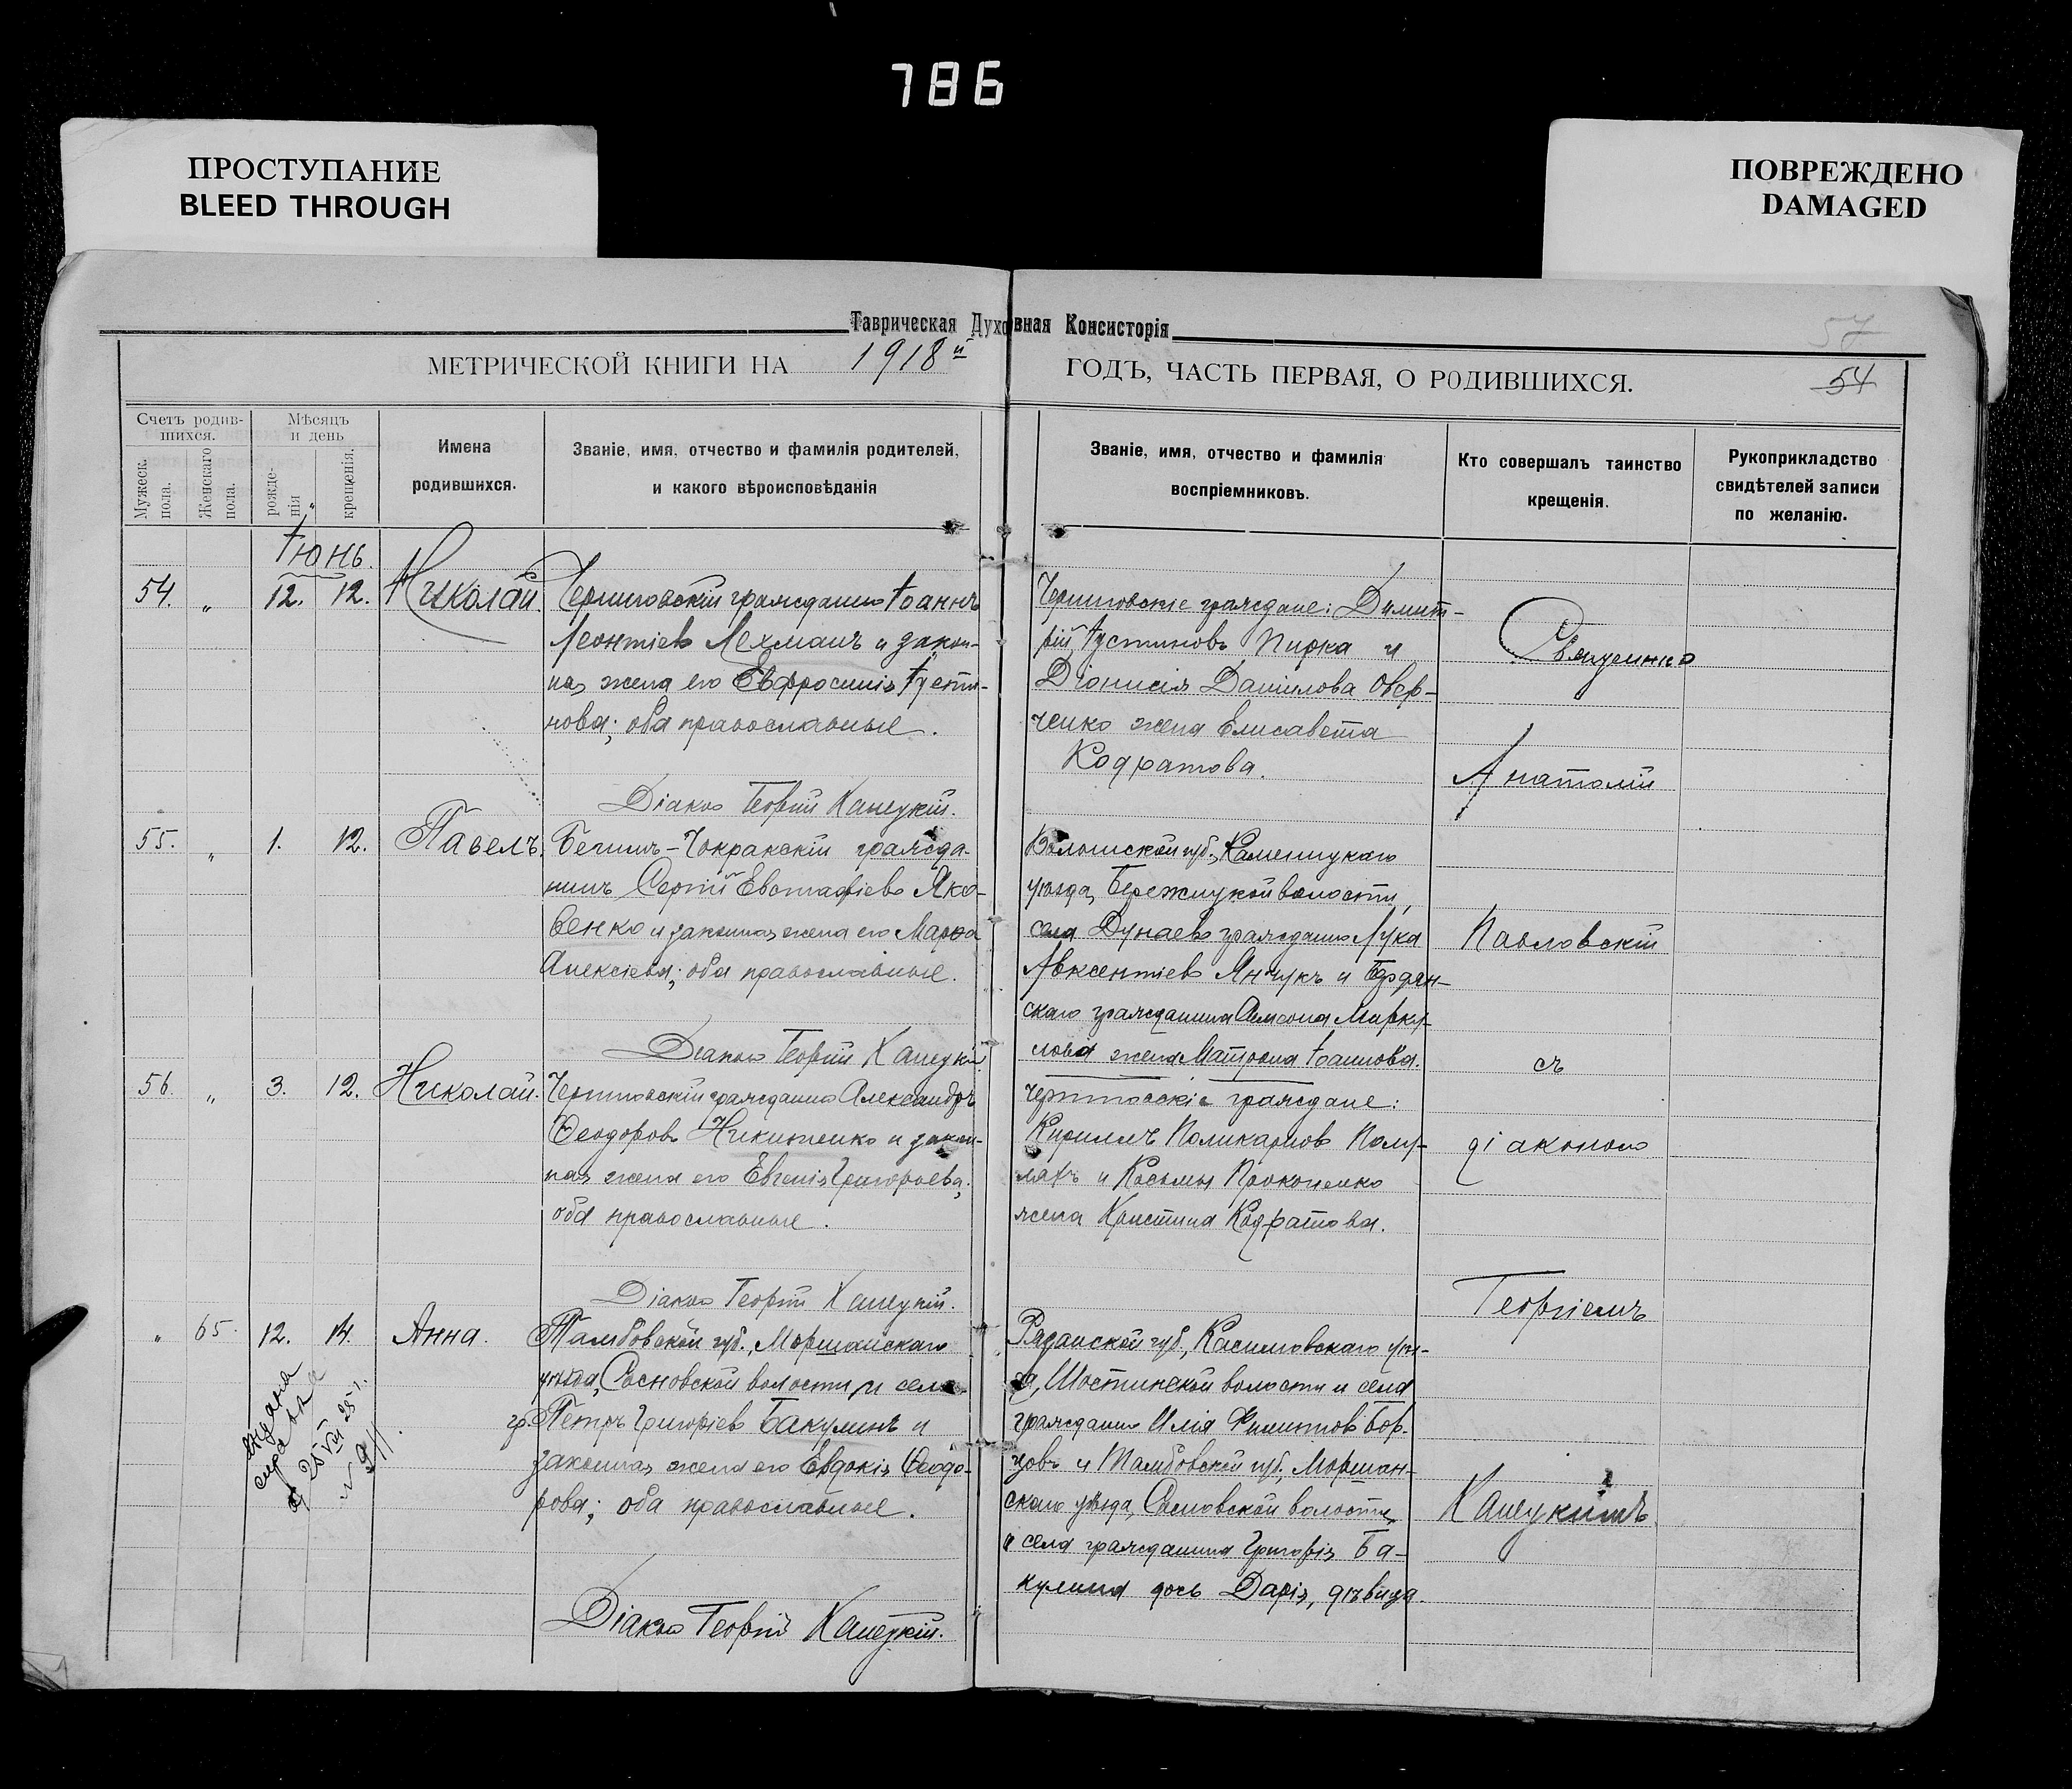 786
ПРОСТУПАНИЕ
BLEED THROUGH
ПОВРЕЖДЕНО
DAMAGED
Таврическая Духовная Консисторія
57
МЕТРИЧЕСКОЙ КНИГИ НА 1918й ГОДЪ, ЧАСТЬ ПЕРВАЯ, О РОДИВШИХСЯ.
54
Счетъ родив-
шихся.
Мужеск. пола.
Женскаго пола.
Мѣсяцъ
и день
рожде-
нія
крещенія.
Имена
родившихся.
Званіе, имя, отчество и фамилія родителей,
и какого вѣроисповѣданія
Званіе, имя, отчество и фамилія
воспріемниковъ.
Кто совершалъ таинство
крещенія.
Рукоприкладство
свидѣтелей записи
по желанію.
Іюнь.
54. " 12. 12. Николай.
Черниговскій гражданинъ Іоаннъ
Леонтіевъ Лехманъ и закон-
ная жена его Евфросинія Іусти-
нова; оба православные.
Діаконъ Георгій Канецкій.
Черниговскіе граждане: Димит-
рій Іустиновъ Пирка и
Діонисія Даніилова Овер-
ченко жена Елисавета
Кодратова.
55. " 1. 12. Павелъ.
Бегимъ-Чокракскій гражда-
нинъ Сергій Евстафіевъ Яко-
венко и законная жена его Марѳа
Алексіева; оба православные.
Діаконъ Георгій Канецкій.
Волынской губ., Каменицкаго
уѣзда, Бережицкой волости,
села Дунаева гражданинъ Лука
Авксентіевъ Янчукъ и
скаго гражданина
жена Матрона Іоаннова.
56. " 3. 12. Николай.
Черниговскій гражданинъ Александръ
Ѳеодоровъ Никитенко и закон-
ная жена его Евгенія Григорьева;
оба православные.
Діаконъ Георгій Канецкій.
Черниговскіе граждане:
Кириллъ Поликарповъ Полу-
ляхъ и Космы Прокопенко
жена Христина Кодратова.
" 65. 12. 14. Анна.
Тамбовской губ., Моршанскаго
уѣзда, Сосновской волости и села
гр. Петръ Григоріевъ Бакулинъ и
законная жена его Евдокія Ѳеодо-
рова; оба православные.
Діаконъ Георгій Канецкій.
Рязанской губ., Касимовскаго уѣз-
да, Шостинской волости и села
гражданинъ Илія Филиптовъ Бор-
цовъ и Тамбовской губ., Моршан-
скаго уѣзда, Сосновской волости
и села гражданина Григорія Ба-
кулина дочь Дарія, дѣвица.
Выдана
справка
25 VIII 25 г.
№ 911.
Священникъ
Анатолій
Павловскій
съ
діакономъ
Георгіемъ
Канецкимъ.